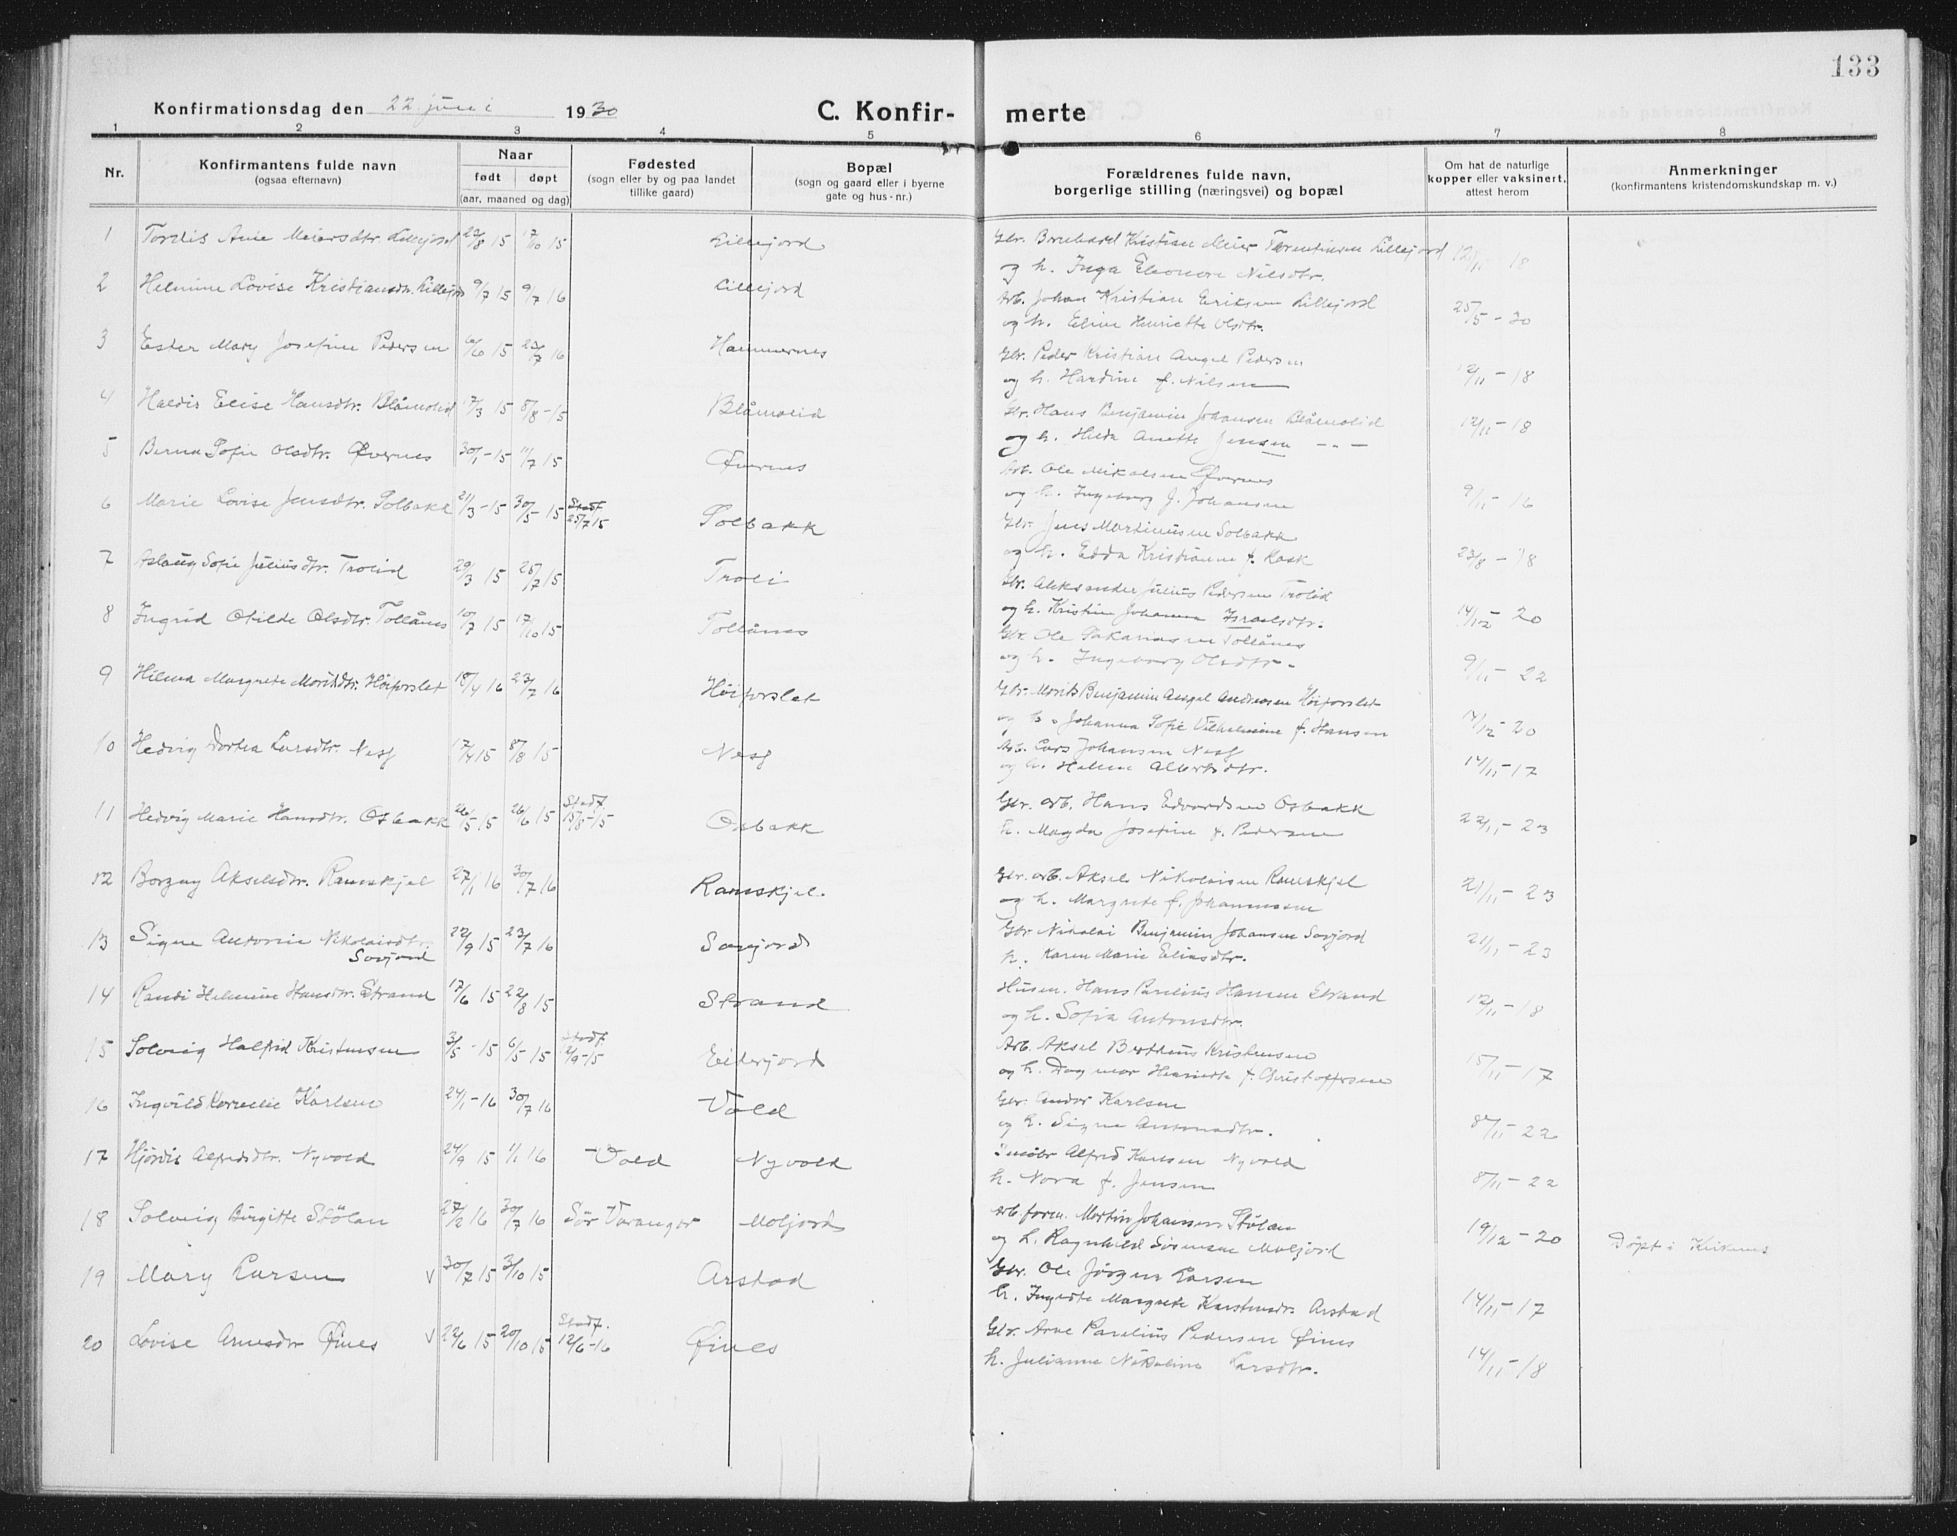 133
Konfirmationsdag den 22. juni 1930
C. Konfir- merte
1 2 3 4 5 6 7 8
Nr.
Konfirmantens fulde navn
(ogsaa efternavn)
Naar
født døpt
(aar, maaned og dag)
Fødested
(sogn eller by og paa landet
tillike gaard)
Bopæl
(sogn og gaard eller i byerne
gate og hus-nr.)
Forældrenes fulde navn,
borgerlige stilling (næringsvei) og bopæl
Om hat de naturlige
kopper eller vaksinert,
attest herom
Anmerkninger
(konfirmantens kristendomskundskap m. v.)
1 Tordis Anie Meiersdtr. Lillejord 22/8 15 17/10 15 Lillejord Gbr. Bernhard Kristian Meier Torentinsen Lillejord 12/11 18
og h. Inga Eleonore Nilsdtr.
2 Helmine Lovise Kristiansdtr. Lillejord 9/7 15 9/7 16 Lillejord Arb. Johan Kristian Eriksen Lillejord 25/5 - 30
og h. Eline Henriette Olsdtr.
3 Ester Mary Josefine Pedersen 15 23/7 16 Hammernes Gbr. Peder Kristian Angel Pedersen
og h. Hardine f. Nilsen 12/11 - 18
4 Haldis Elise Hansdtr. Blåmolid 17/3 15 8/8 - 15 Blåmolid Gbr. Hans Benjamin Johansen Blåmolid
og h. Hilda Anette Jensen - " - 12/11 - 18
5 Berna Sofie Olsdtr. Øvernes 30/1 - 15 11/7 15 Øvernes Arb. Ole Mikalsen Øvernes
og h. Ingeborg J. Johansen 9/11 - 16
6 Marie Lovise Jensdtr. Solbakk 21/3 - 15 30/5 - 15 Stadf. 25/7 15 Solbakk Gbr. Jens Martinussen Solbakk
og h. Edda Kristianne f. Rask 23/8 - 18
7 Aslaug Sofie Juliusdtr. Trolid 29/3 15 25/7 15 Troli Gbr. Aleksander Julius Pedersen Trolid
og h. Kristine Johanna Israelsdtr. 14/12 - 20
8 Ingrid Otilde Olsdtr. Tollånes 10/7 15 17/10 15 Tollånes Gbr. Ole Sakariassen Tollånes
og h. Ingeborg Olsdtr. 9/11 - 22
9 Hilma Margrete Moritsdtr. Høiforslet 18/4 16 23/7 16 Høiforslet Gbr. Morits Benjamin Angel Andersen Høiforslet
og h. Johanna Sofie Vilhelmine f. Hansen 14/12 - 20
10 Hedvig Dortea Larsdtr. Nesg 17/4 15 8/8 15 Nesg Arb. Lars Johansen Nesg
og h. Helene Albertsdtr. 14/11 - 17
11 Hedvig Marie Hansdtr. Osbakk 26/5 15 26/6 15 Stadf. 15/8 - 15 Osbakk Gbr. arb. Hans Edvardsen Osbakk
h. Magda Josefine f. Pedersen 22/11 - 23
12 Borgny Akselsdtr. Ramskjel 27/1 16 30/7 16 Ramskjel. Gbr. arb. Aksel Nikolaisen Ramskjel
og h. Margrete f. Johannessen 21/11 - 23
13 Signe Antonie Nikolaisdtr. Sørfjord 22/9 15 23/7 16 Sørfjord Gbr. Nikolai Benjamin Johansen Sørfjord
h. Karen Marie Eliasdtr. 21/11 - 23
14 Randi Helmine Hansdtr. Strand 17/6 15 22/8 15 Strand Husm. Hans Parelius Hansen Strand
og h. Sofia Antonsdtr. 12/11 - 18
15 Solveig Halfrid Kristensen 3/5 - 15 6/5 15 Stadf. 12/9 - 15 Eiterjord Arb. Aksel Berthius Kristensen
og h. Dagmar Henriette f. Christoffersen 15/11 - 17
16 Ingvild Kornelie Karlsen 24/1 - 16 30/7 16 Vold Gbr. Andor Karlsen
og h. Signe Antonsdtr. 8/11 - 22
17 Hjørdis Alfredsdtr. Nyvold 24/9 15 1/1 16 Vold Nyvold Småbr. Alfred Karlsen Nyvold
h. Nora f. Jensen 8/11 - 22
18 Solveig Birgitte Stølan 27/2 16 30/7 16 Sør Varanger Moljord Arb.form. Martin Johansen Stølan
og h. Ragnhild Sørensen Moljord 19/12 - 20 Døpt i Kirkenes
19 Mary Larsen v 30/7 15 3/10 15 Arstad Gbr. Ole Jörgen Larsen
h. Ingerte Margrete Karstensdtr. Arstad 14/11 - 17
20 Lovise Arnesdtr. Øines v 22/6 15 20/10 15 Stadf. 12/6 - 16 Øines Gbr. Arne Parelius Pedersen Øines
h. Julianne Nikoline Larsdtr. 14/11 - 18